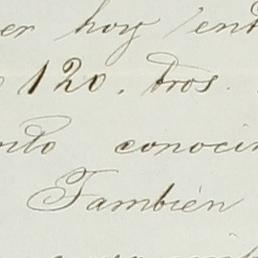 er hoy ent
120. bros.
nto conocin
También